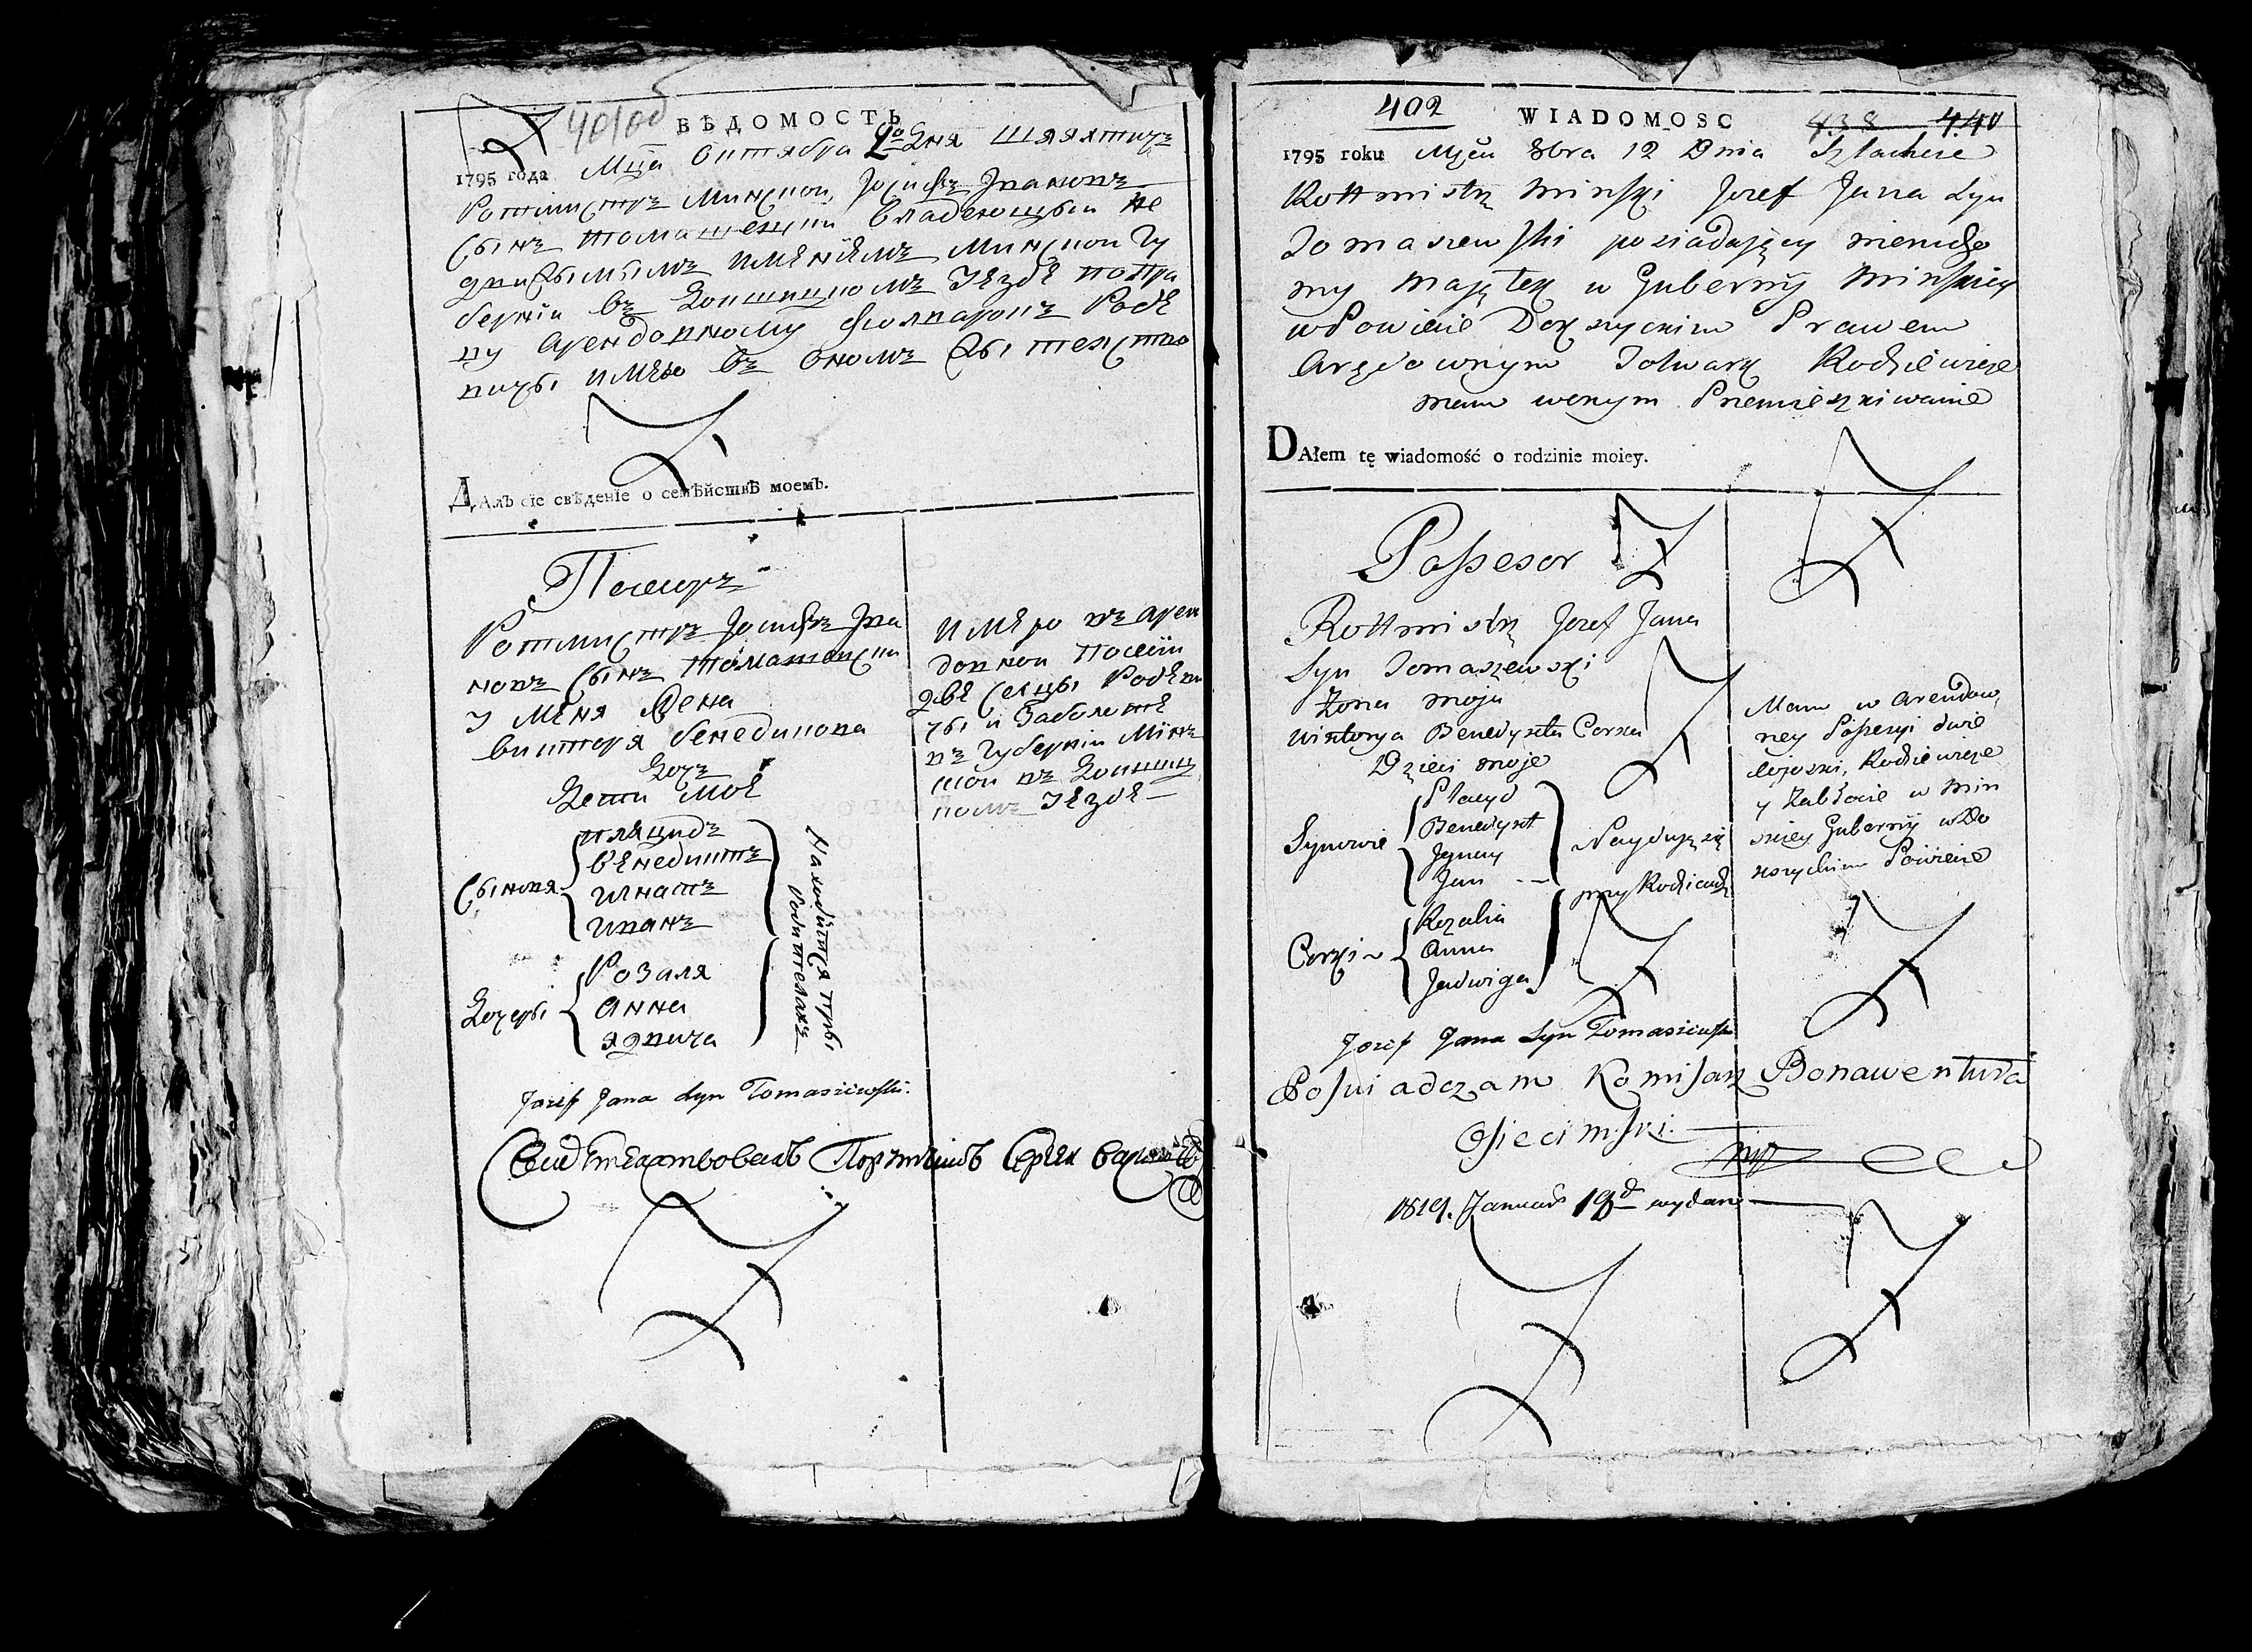 401 об
ВѢДОМОСТЬ
1795 года Мца Октября 2го Дня Шляхтичъ
Ротмистръ Минской Іосифъ Ивановъ
Сынъ Томашевскій владеющый не
движымымъ имѣнїемъ Минской Гу
берніи въ Докшицкомъ Уѣздѣ по пра
ву Арендовному фолваркъ Родѣ
вичы имѣю въ ономъ жытелство
ДАлЪ сїе свѣденїе о семѣйствѣ моемЪ.
Ротмистръ Іосифъ Ива
новъ Сынъ Томашевскій
У меня Жена
Виктора Бенедикова
Дочъ
Дети моѣ
Сыновя
Пляцидъ
Бѣнедиктъ
Игнатъ
Иванъ
Дочеры
Розаля
Анна
Ядвига
Находятся пры Родителахъ
имѣю въ арен
довной посеїи
двѣ Селцы Родѣви
чы и Заболотѣ
въ Губерніи Мінъ
ской въ Докшиц
комъ Уѣздѣ
Józef Jana Syn Tomaszewski.
Свидѣтелствовалъ Порутчикъ Сергѣй
402
WIADOMOSC
438 440
1795 roku Mscu 8bra 12 Dnia Szlachcic
Rottmistrz Minski Jozef Jana Syn
Tomaszewski posiadaiący nierucho
my Maiątek w Gubernij Minskiey
w Powiecie Dokszyckim Prawem
Arędownym Folwark Rodziewicze
mam w onym Pomieszkiwanie
DAłem tę wiadomość o rodzinie moiey.
Possesor
Rottmistrz Jozef Jana
Syn Tomaszewski
Żona moja
Wiktorya Benedykta Corka
Dzieci moje
Synowie
Placyd
Benedykt
Jgnacy
Jan
Corki
Rozalia
Anna
Jadwiga
Naydują się
przy Rodzicach
Mam w Arendow
ney Possesyi dwie
wioski, Rodziewicze
y Zabłocie w Min
skiey Gubernij w Do
kszyckim Powiecie
Jozef Jana Syn Tomaszewski
Poswiadczam Komisarz Bonawentura
Osiecimski
1819. Januar 19d wydano